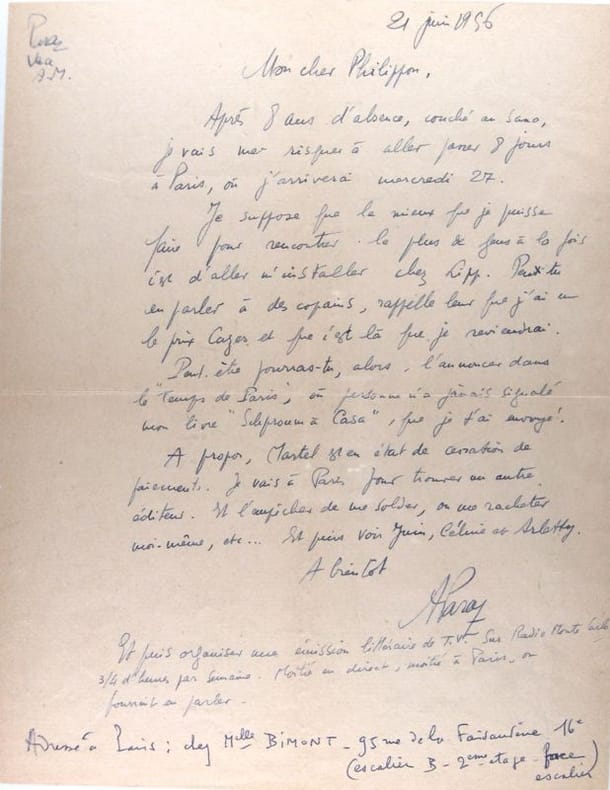 21 juin 1956
Paraz
Vence
A.M.
Mon cher Philippon,
Après 8 ans d'absence, couché au sana,
je vais me risquer à aller passer 8 jours
à Paris, où j'arriverai mercredi 27.
Je suppose que le mieux que je puisse
faire pour rencontrer le plus de gens à la fois
c'est d'aller m'installer chez Lipp. Peux-tu
en parler à des copains, rappelle leur que j'ai eu
le prix Cazes et que c'est là que je reviendrai.
Peut-être pourras-tu, alors, l'annoncer dans
le "Temps de Paris", où personne n'a jamais signalé
mon livre "Schproum à Casa", que je t'ai envoyé.
A propos, Martel est en état de cessation de
paiements. Je vais à Paris pour trouver un autre
éditeur. Et l'empêcher de me solder, ou me racheter
moi-même, etc... Et puis voir Juin, Céline et Arletty.
A bientôt
AParaz
Et puis organiser une émission littéraire de T.V. sur Radio Monte Carlo
3/4 d'heure par semaine. Moitié en direct, moitié à Paris, on
pourrait en parler.
Adresse à Paris : chez Melle BIMONT - 95 rue de la Faisanderie 16e
(escalier B - 2eme étage - face
escalier)